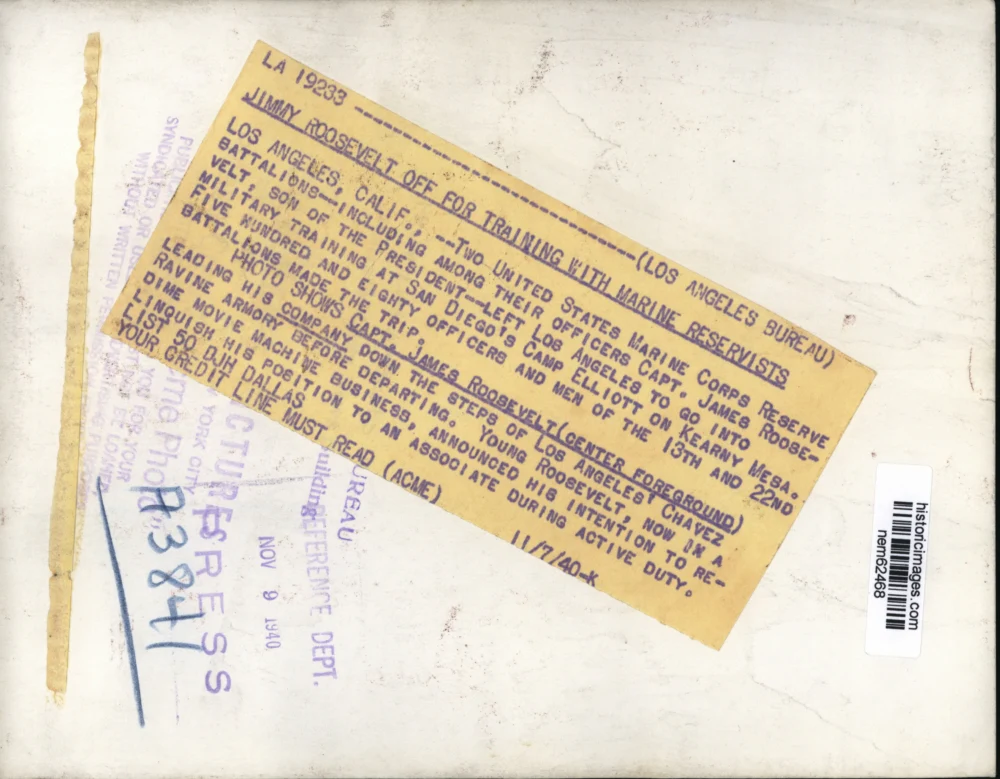 LA 19233 ---------------------------------(LOS ANGELES BUREAU)
JIMMY ROOSEVELT OFF FOR TRAINING WITH MARINE RESERVISTS
LOS ANGELES, CALIF., --TWO UNITED STATES MARINE CORPS RESERVE
BATTALIONS--INCLUDING AMONG THEIR OFFICERS CAPT. JAMES ROOSE-
VELT, SON OF THE PRESIDENT--LEFT LOS ANGELES TO GO INTO
MILITARY TRAINING AT SAN DIEGO'S CAMP ELLIOTT ON KEARNY MESA.
FIVE HUNDRED AND EIGHTY OFFICERS AND MEN OF THE 13TH AND 22ND
BATTALIONS MADE THE TRIP.
PHOTO SHOWS CAPT. JAMES ROOSEVELT (CENTER FOREGROUND)
LEADING HIS COMPANY DOWN THE STEPS OF LOS ANGELES' CHAVEZ
RAVINE ARMORY BEFORE DEPARTING. YOUNG ROOSEVELT, NOW IN A
DIME MOVIE MACHINE BUSINESS, ANNOUNCED HIS INTENTION TO RE-
LINQUISH HIS POSITION TO AN ASSOCIATE DURING ACTIVE DUTY.
LIST 50 DJH DALLAS 11/7/40-K
YOUR CREDIT LINE MUST READ (ACME)
UREAU
uilding
EFERENCE DEPT.
NOV 9 1940
CTURES
PRESS
YORK CITY
A3841
me Photo
YOU FOR YOUR
BE LOANED
SYNDICATED OR
WITHOUT WRITTEN
historicimages.com
nem62468